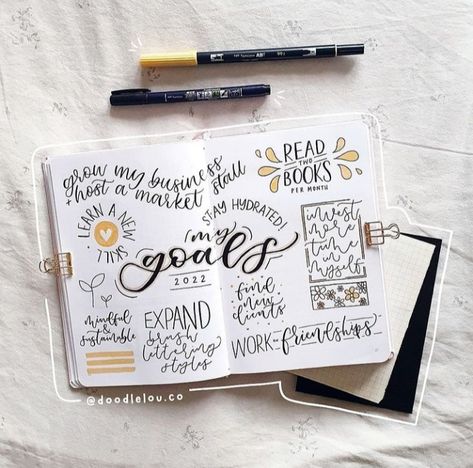 grow my business
+ host a market stall
READ
TWO
BOOKS
PER MONTH
LEARN A NEW SKILL
STAY HYDRATED!
my
goals
2022
invest
more
time
in
myself
find
new
clients
mindful
&
sustainable
EXPAND
brush
lettering
styles
WORK friendships
@doodlelou.co